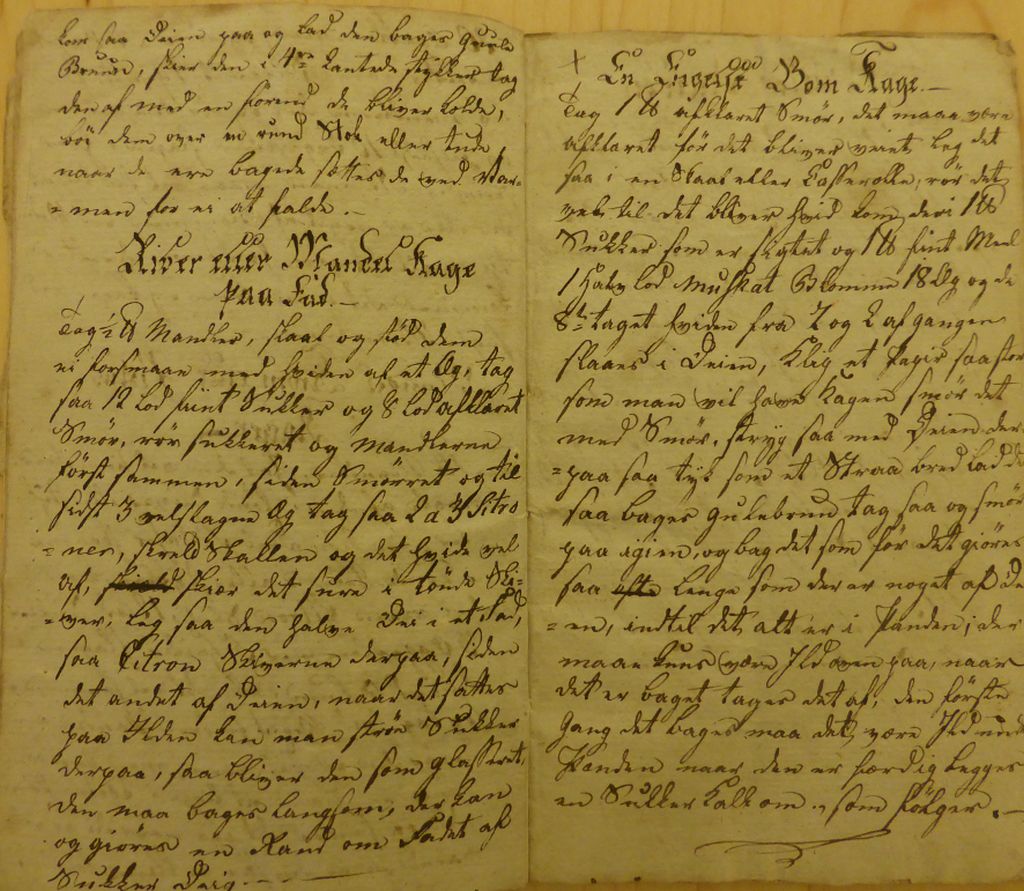 kom saa Deien paa og lad den bages Guul
Bruun, skier den i 4re kantede stykker tag
den af med en förend de bliver kolde,
böi dem over en rund Stok eller tude,
naar de ere bagede sættes de ved Var-
=men for ei at falde.-
Riber eller Mandel Kage
paa Fad.-
Tag ½ ℔ Mandler, skaal og stöd dem
ei forsmaae med hviden af et Æg, tag
saa 12 Lod fiint Sukker og 8 Lod afklaret
Smör, rör sukkeret og Mandlerne
först sammen, siden Smörret og til
sidst 3 velslagne Æg tag saa 2 a 3 Citro
=ner, skreld Skallen og det hvide vel
af, skier det sure i tönde Ski=
=ver, leg saa den halve Dei i et Fad,
saa Citron Skiverne derpaa, siden
det andet af Deien, naar det sættes
paa Ilden kan man ströe Sukker
derpaa, saa bliver den som glasseret,
den maa bages langsom, der kan
og giöres en Rand om Fadet af
Sukker Deig.-
+ En Engelsk Bom Kage.-
Tag 1 ℔ afklaret Smör, det maae være
afklaret för det bliver veiet, leg det
saa i en Skaal eller Casserolle, rör det
vel til det bliver hvid kom deri 1 ℔
Sukker som er sigtet og 1 ℔ fint Meel
1 Halv Lod Muskat Blomme 18 Æg og de
8te taget hviden fra 2 og 2 af gangen
slaaes i Deien, Klip et Papir saa stor
som man vil have Kagen smör det
med Smör, stryg saa med Deien der
=paa saa tyk som et Straa bred lad de
saa bages gulebrun tag saa og smör
paa igien, og bag det som för det giöres
saa lenge som der er noget af De
=en, indtil det alt er i Panden; der
maae kuns være Ild oven paa, naar
det er baget tages det af, den förste
Gang det bages maa det være Ild und
Panden naar den er færdig legges
en Sukker Kalk om, som fölger.-